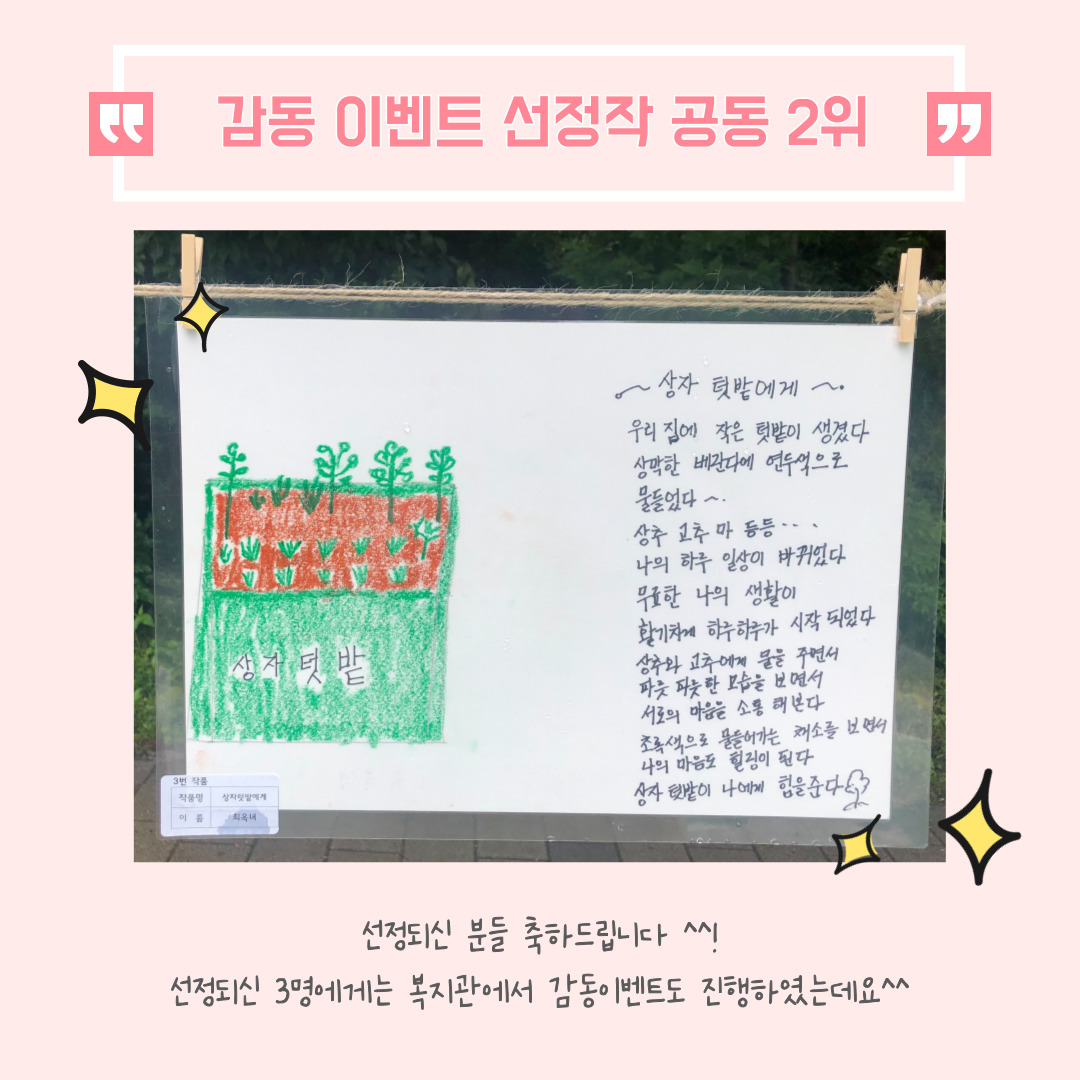 감동 이벤트 선정작 공동 2위
~ 상자 텃밭에게 ~
우리 집에 작은 텃밭이 생겼다
상막한 베란다에 연두색으로
물들었다 ~.
상추 고추 마 등등....
나의 하루 일상이 바뀌었다
무료한 나의 생활이
활기차게 하루하루가 시작 되었다
상추와 고추에게 물을 주면서
파릇 파릇한 모습을 보면서
서로의 마음을 소통 해본다
초록색으로 물들어가는 채소를 보면서
나의 마음도 힐링이 된다
상자 텃밭이 나에게 힘을준다
상자 텃밭
3번 작품
작품명 상자텃밭에게
이 름 최옥녀
선정되신 분들 축하드립니다 ^^!
선정되신 3명에게는 복지관에서 감동이벤트도 진행하였는데요^^